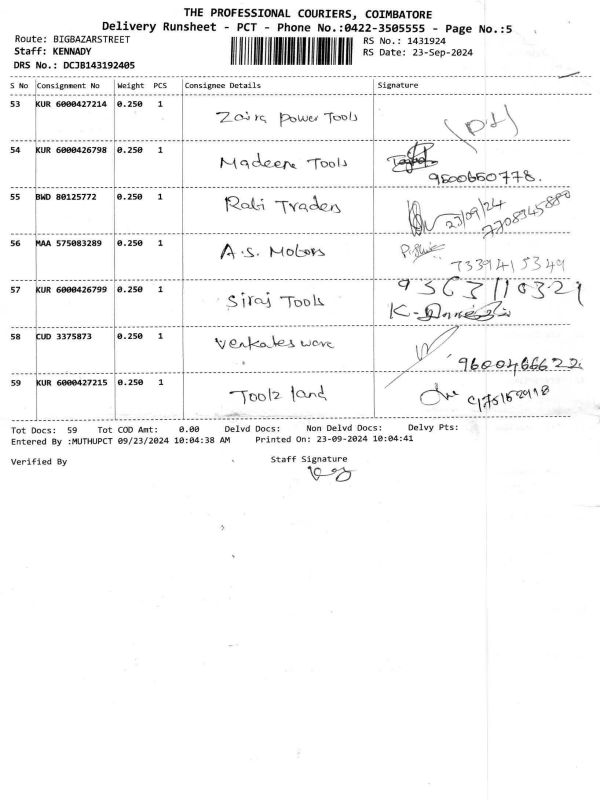 THE PROFESSIONAL COURIERS, COIMBATORE
Delivery Runsheet - PCT - Phone No.:0422-3505555 - Page No.:5
Route: BIGBAZARSTREET
RS No.: 1431924
Staff: KENNADY
RS Date: 23-Sep-2024
DRS No.: DCJB143192405
S No Consignment No Weight PCS Consignee Details Signature
53 KUR 6000427214 0.250 1 Zaira Power Tools
54 KUR 6000426798 0.250 1 Madeena Tools
9500650778.
55 BWD 80125772 0.250 1 Rabi Traders 23/09/24
7708345880
56 MAA 575083289 0.250 1 A.S. Motors
7339415349
57 KUR 6000426799 0.250 1 Siraj Tools 9363110321
58 CUD 3375873 0.250 1 Venkateswara
9600466622
59 KUR 6000427215 0.250 1 Toolz land
Tot Docs: 59 Tot COD Amt: 0.00 Delvd Docs: Non Delvd Docs: Delvy Pts:
Entered By :MUTHUPCT 09/23/2024 10:04:38 AM Printed On: 23-09-2024 10:04:41
Verified By Staff Signature